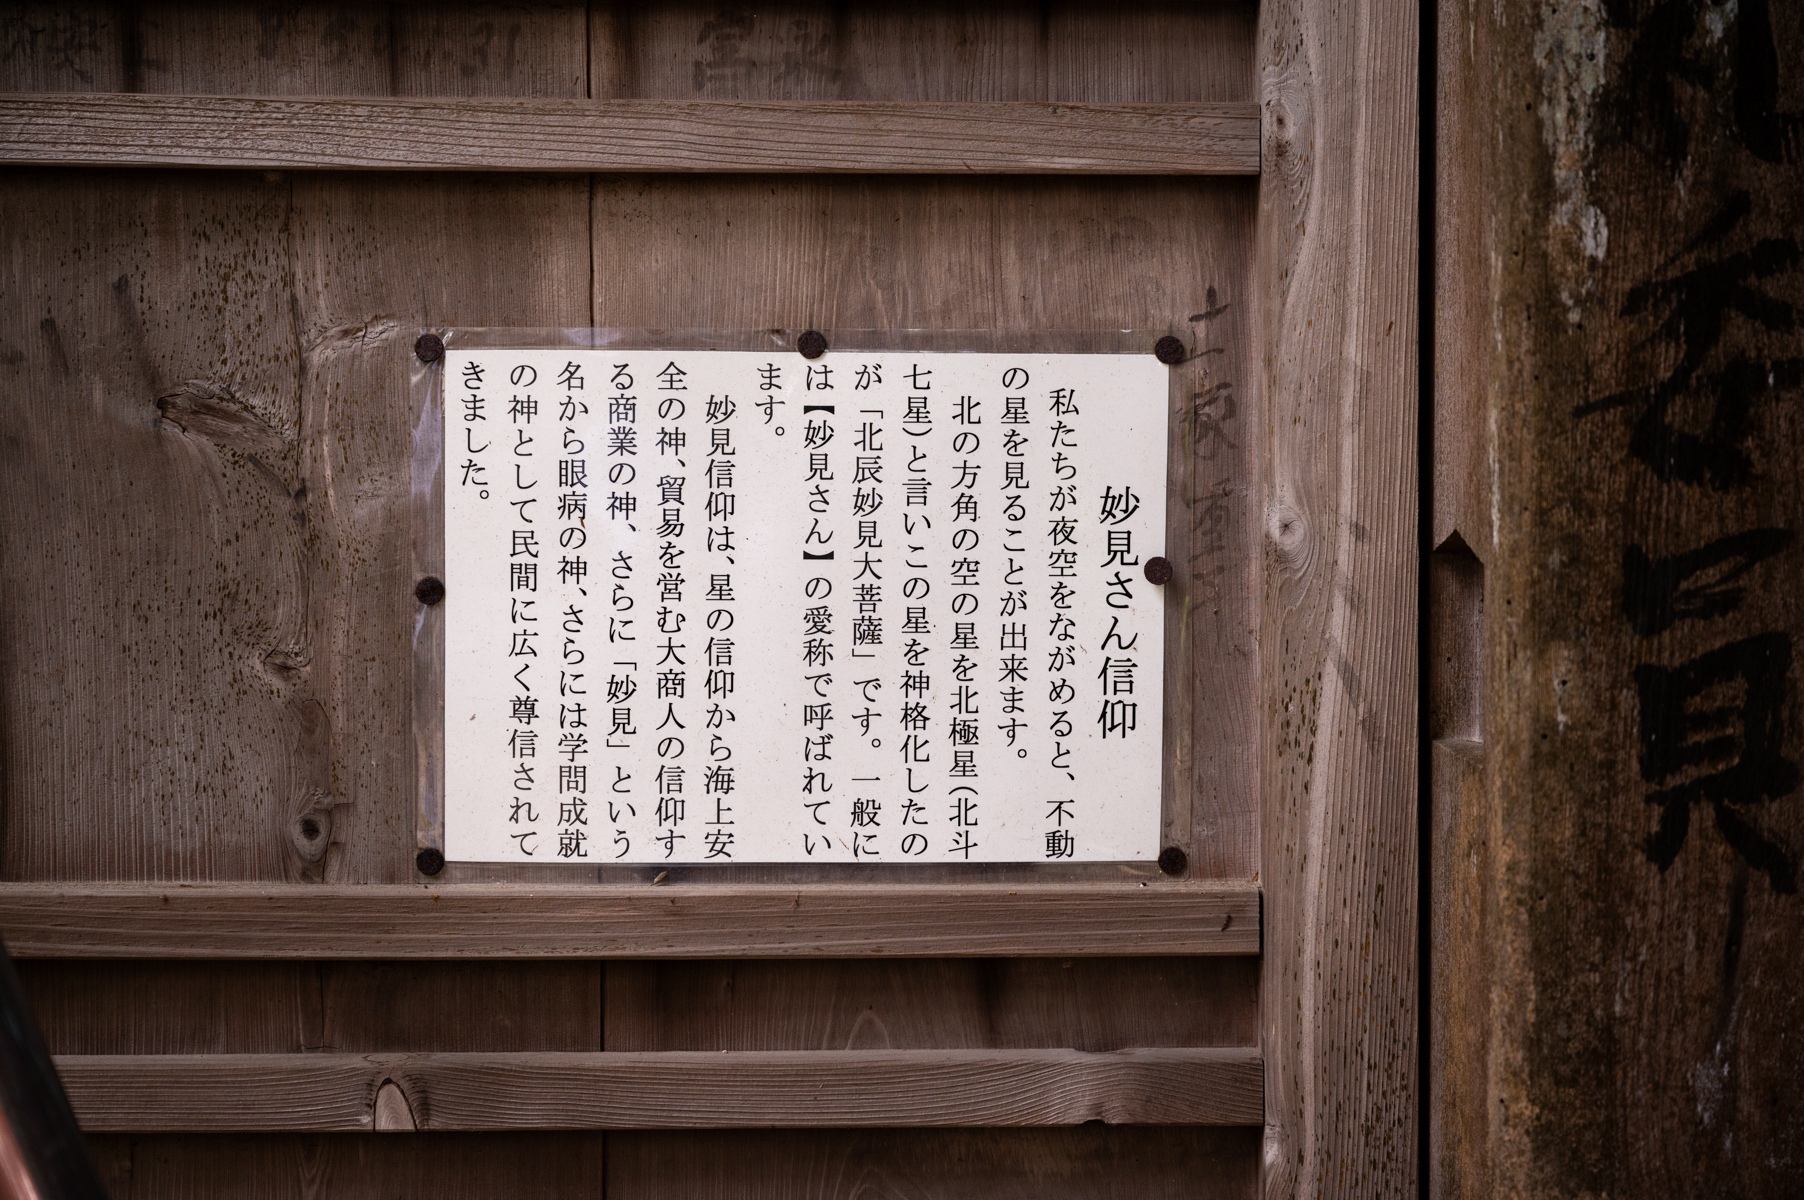 妙見さん信仰
私たちが夜空をながめると、不動
の星を見ることが出来ます。
北の方角の空の星を北極星(北斗
七星)と言いこの星を神格化したの
が「北辰妙見大菩薩」です。一般に
は【妙見さん】の愛称で呼ばれてい
ます。
妙見信仰は、星の信仰から海上安
全の神、貿易を営む大商人の信仰す
る商業の神、さらに「妙見」という
名から眼病の神、さらには学問成就
の神として民間に広く尊信されて
きました。